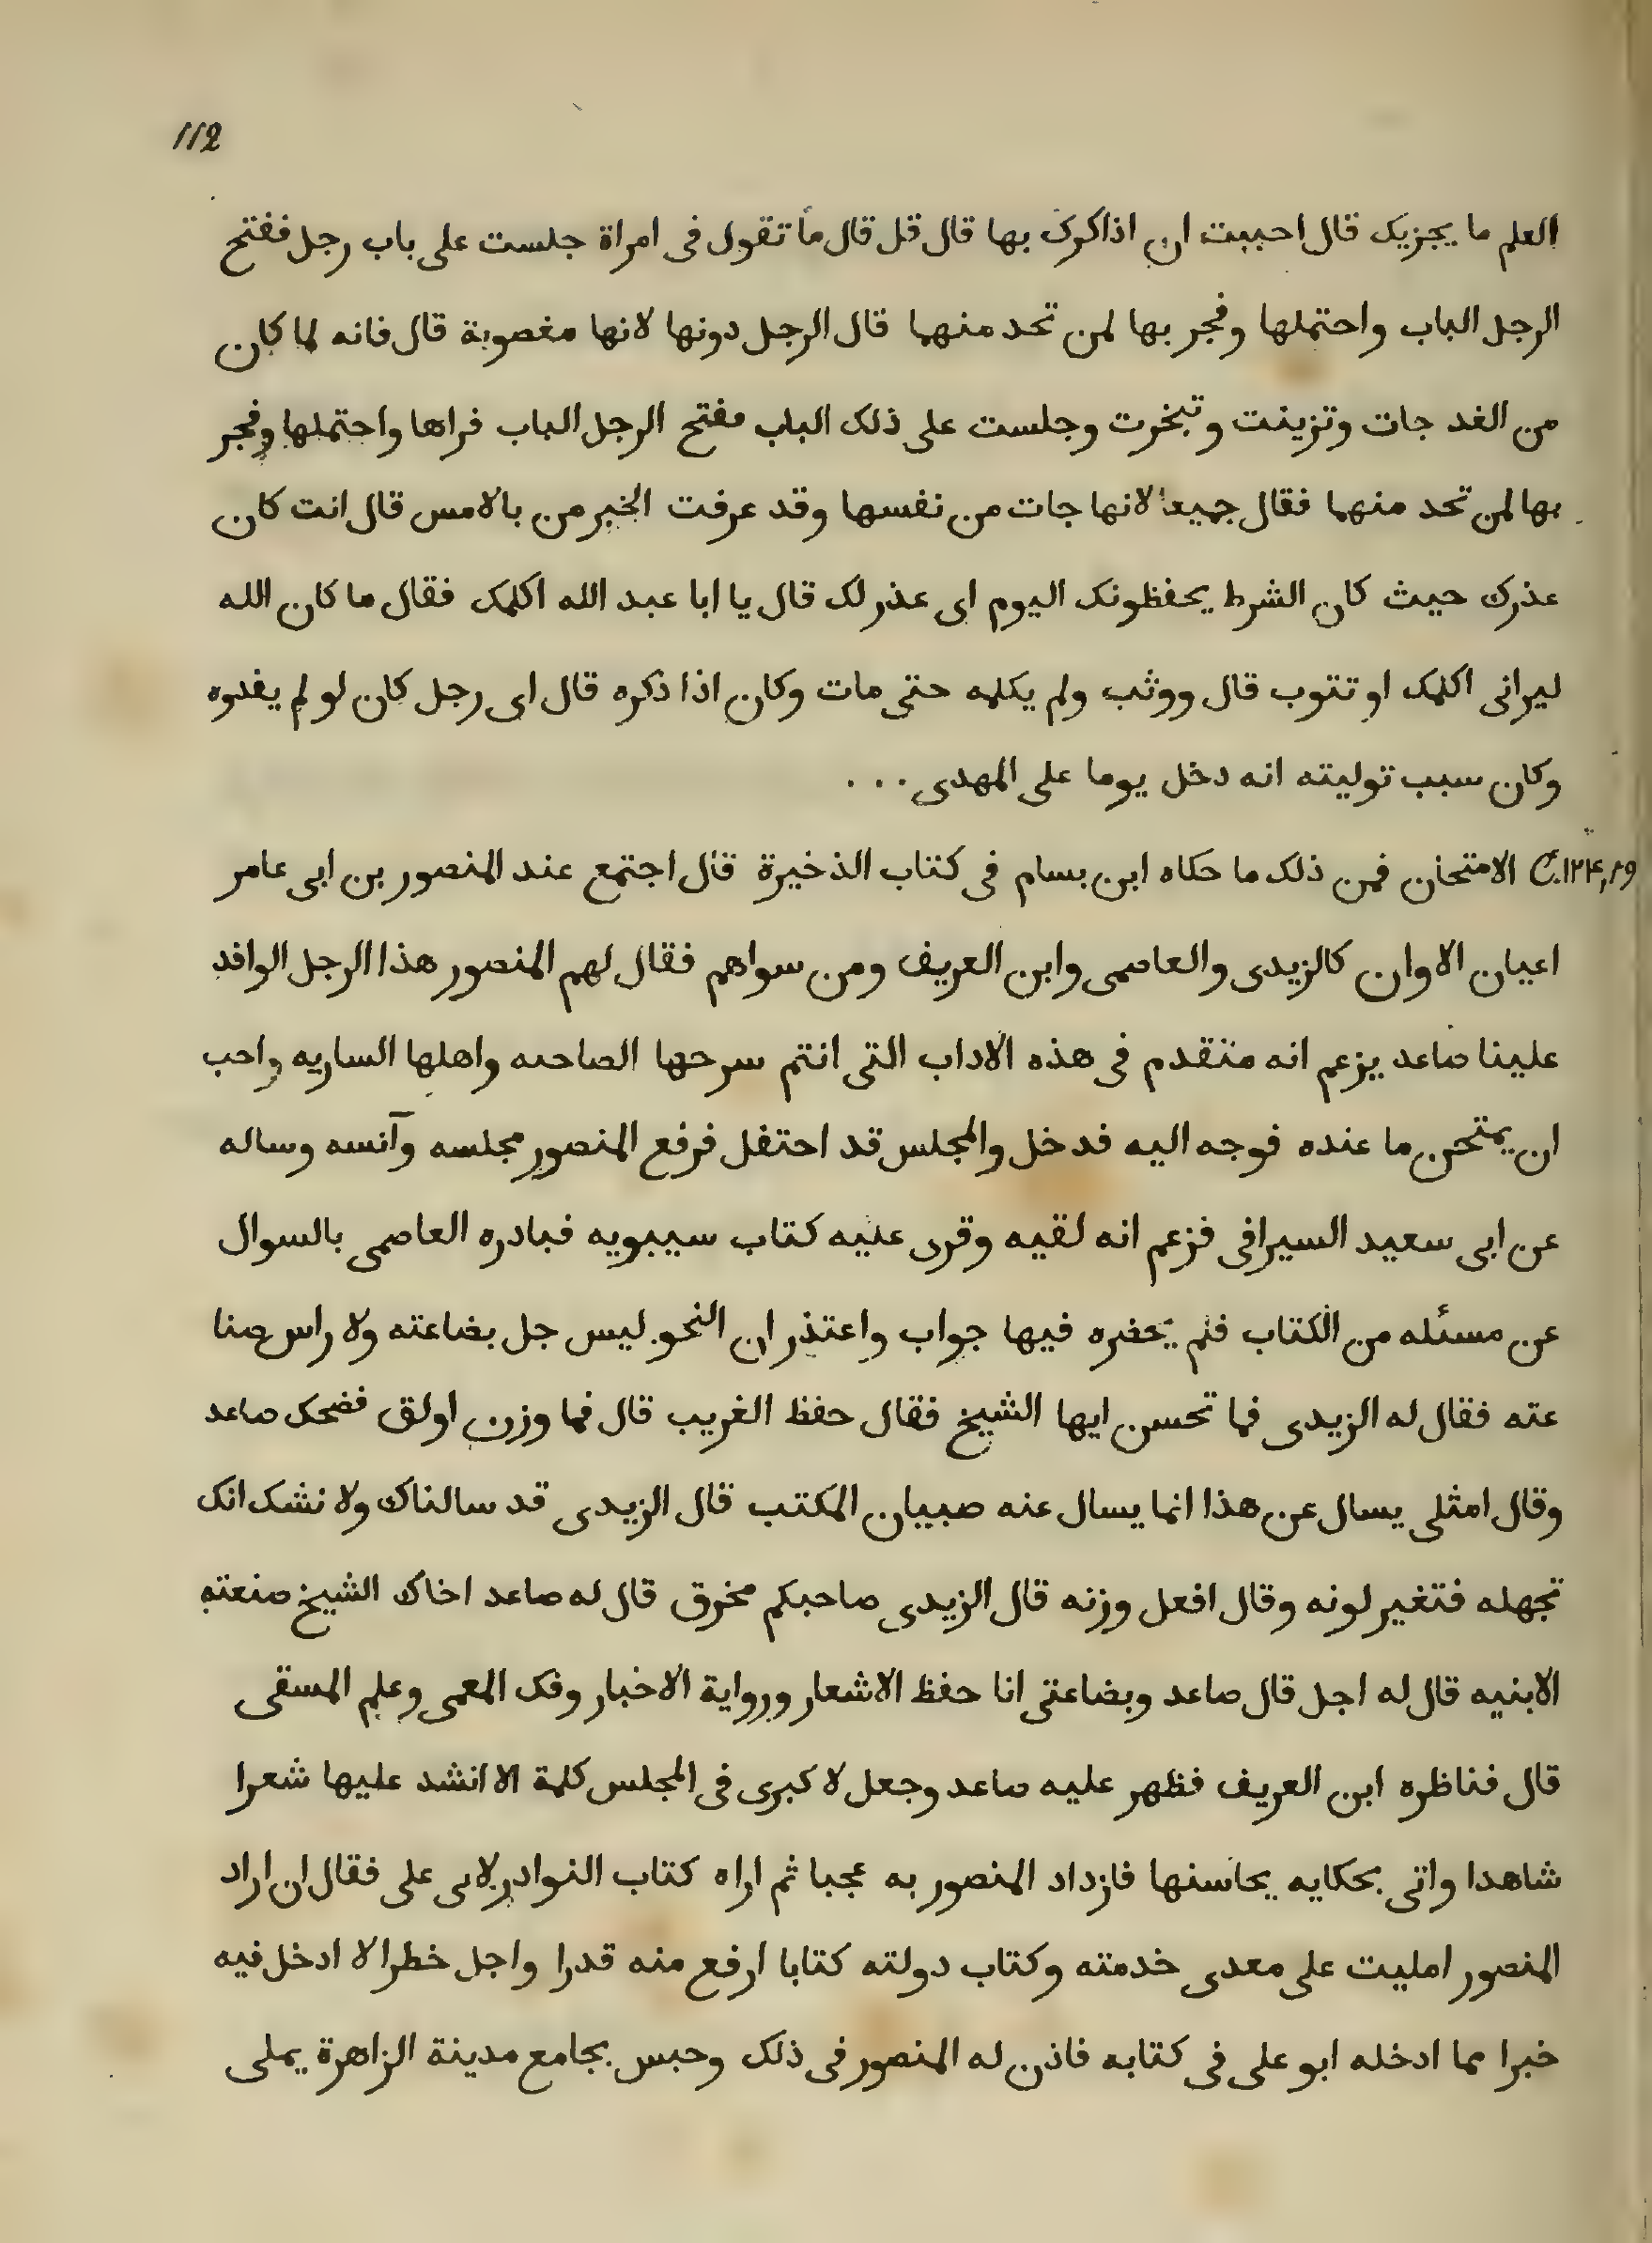 112
العلم ما يجزيك قال احببت ان اذاكرك بها قال قل قال ما تقول فى امراة جلست على باب رجل ففتح
الرجل الباب واحتملها وفجر بها لمن تحد منهما قال الرجل دونها لانها مغصوبة قال فانه لما كان
من الغد جات وتزينت وتبخرت وجلست على ذلك الباب ففتح الرجل الباب فراها واحتملها وفجر
بها لمن تحد منهما فقال جميعا لانها جات من نفسها وقد عرفت الخبر من بالامس قال انت كان
عذرك حيث كان الشرط يحفظونك اليوم اى عذر لك قال يا ابا عبد الله اكلمك فقال ما كان الله
ليرانى اكلمك او تتوب قال ووثب ولم يكلمه حتى مات وكان اذا ذكره قال اى رجل كان لو لم يفدوه
وكان سبب توليته انه دخل يوما على المهدى . . .
الامتحان فمن ذلك ما حكاه ابن بسام فى كتاب الذخيرة قال اجتمع عند المنصور بن ابى عامر
اعيان الاوان كالزيدى والعاصمى وابن العريف ومن سواهم فقال لهم المنصور هذا الرجل الوافد
علينا صاعد يزعم انه متقدم فى هذه الاداب التى انتم سرحها الصاحىه واهلها الساريه واحب
ان يمتحن ما عنده فوجه اليه فدخل والمجلس قد احتفل فرفع المنصور مجلسه وآنسه وساله
عن ابى سعيد السيرافى فزعم انه لقيه وقرى عليه كتاب سيبويه فبادره العاصمى بالسوال
عن مسئله من الكتاب فلم يحضره فيها جواب واعتذر ان النحو ليس جل بضاعته ولا راس صنا
عته فقال له الزيدى فما تحسن ايها الشيخ فقال حفظ الغريب قال فما وزن اولق فضحك صاعد
وقال امثلى يسال عن هذا انما يسال عنه صبيان المكتب قال الزيدى قد سالناك ولا نشك انك
تجهله فتغير لونه وقال افعل وزنه قال الزيدى صاحبكم مخرق قال له صاعد اخاك الشيخ صنعته
الابنيه قال له اجل قال صاعد وبضاعتى انا حفظ الاشعار ورواية الاخبار وفك المعمى وعلم المسقى
قال فناظره ابن العريف فظهر عليه صاعد وجعل لا كبرى فى المجلس كلمة الا انشد عليها شعرا
شاهدا واتى بحكايه يحاسنها فازداد المنصور به عجبا ثم اراه كتاب النوادر لابى على فقال ان اراد
المنصور امليت على معدى خدمته وكتاب دولته كتابا ارفع منه قدرا واجل خطرا لا ادخل فيه
خبرا مما ادخله ابو على فى كتابه فاذن له المنصور فى ذلك وحبس بجامع مدينة الزاهرة يملى